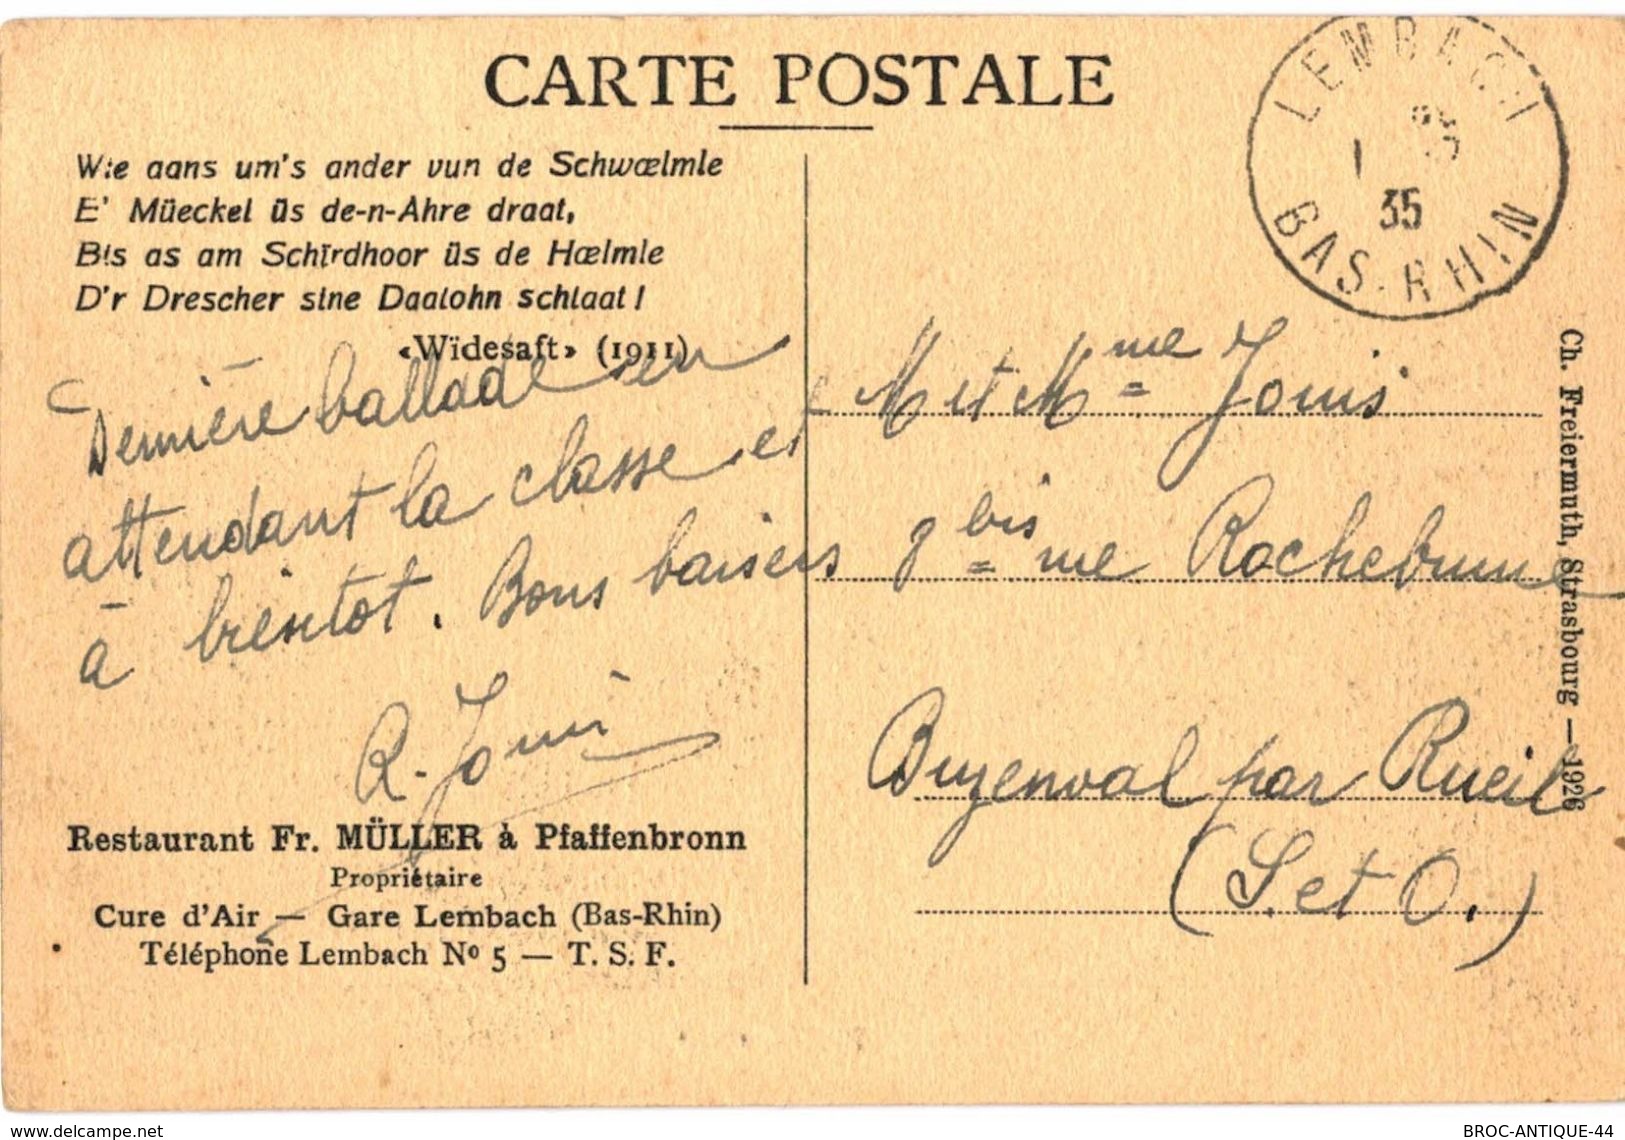 CARTE POSTALE
Wie aans um's ander vun de Schwœlmle
E' Müeckel üs de-n-Ahre draat,
Bis as am Schïrdhoor üs de Hœlmle
D'r Drescher sine Daalohn schlaat!
«Wïdesaft» (1911)
Dernière ballade en
attendant la classe et
à bientot. Bons baisers
R. Jouis
Restaurant Fr. MÜLLER à Pfaffenbronn
Propriétaire
Cure d'Air — Gare Lembach (Bas-Rhin)
Téléphone Lembach Nº 5 — T. S. F.
LEMBACH
35
BAS-RHIN
M et Mme Jouis
8 bis rue Rochebrune
Buzenval par Rueil
(S. et O.)
Ch. Freiermuth, Strasbourg — 1926
delcampe.net
BROC-ANTIQUE-44